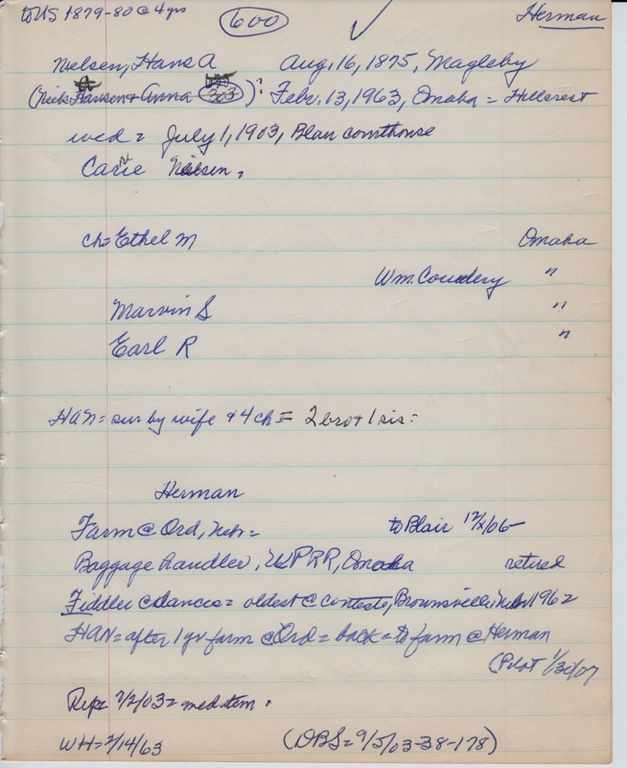 to US 1879-80 @ 4 yrs 600 Herman
Nielsen, Hans A Aug. 16, 1875, Magleby
(Nick Hansen + Anna 303): Febr. 13, 1963, Omaha = Hillcrest
wed = July 1, 1903, Blair courthouse
Carie Nielsen.
ch = Ethel M Omaha
Wm. "
Marvin S "
Earl R "
HAN = sur by wife + 4 ch = 2 bro + 1 sis =
Herman
Farm @ Ord, Neb = to Blair 12/ /06 -
Baggage handler, UPRR, Omaha retired
Fiddler @ dances = oldest @ contests, Brownsville, Neb 1962
HAN = after 1 yr farm @ Ord = back = to farm @ Herman
(Pilot 1/30/07
Rep = 7/2/03 = med item.
WH = 2/14/63 (DBS = 9/5/03-38-178)